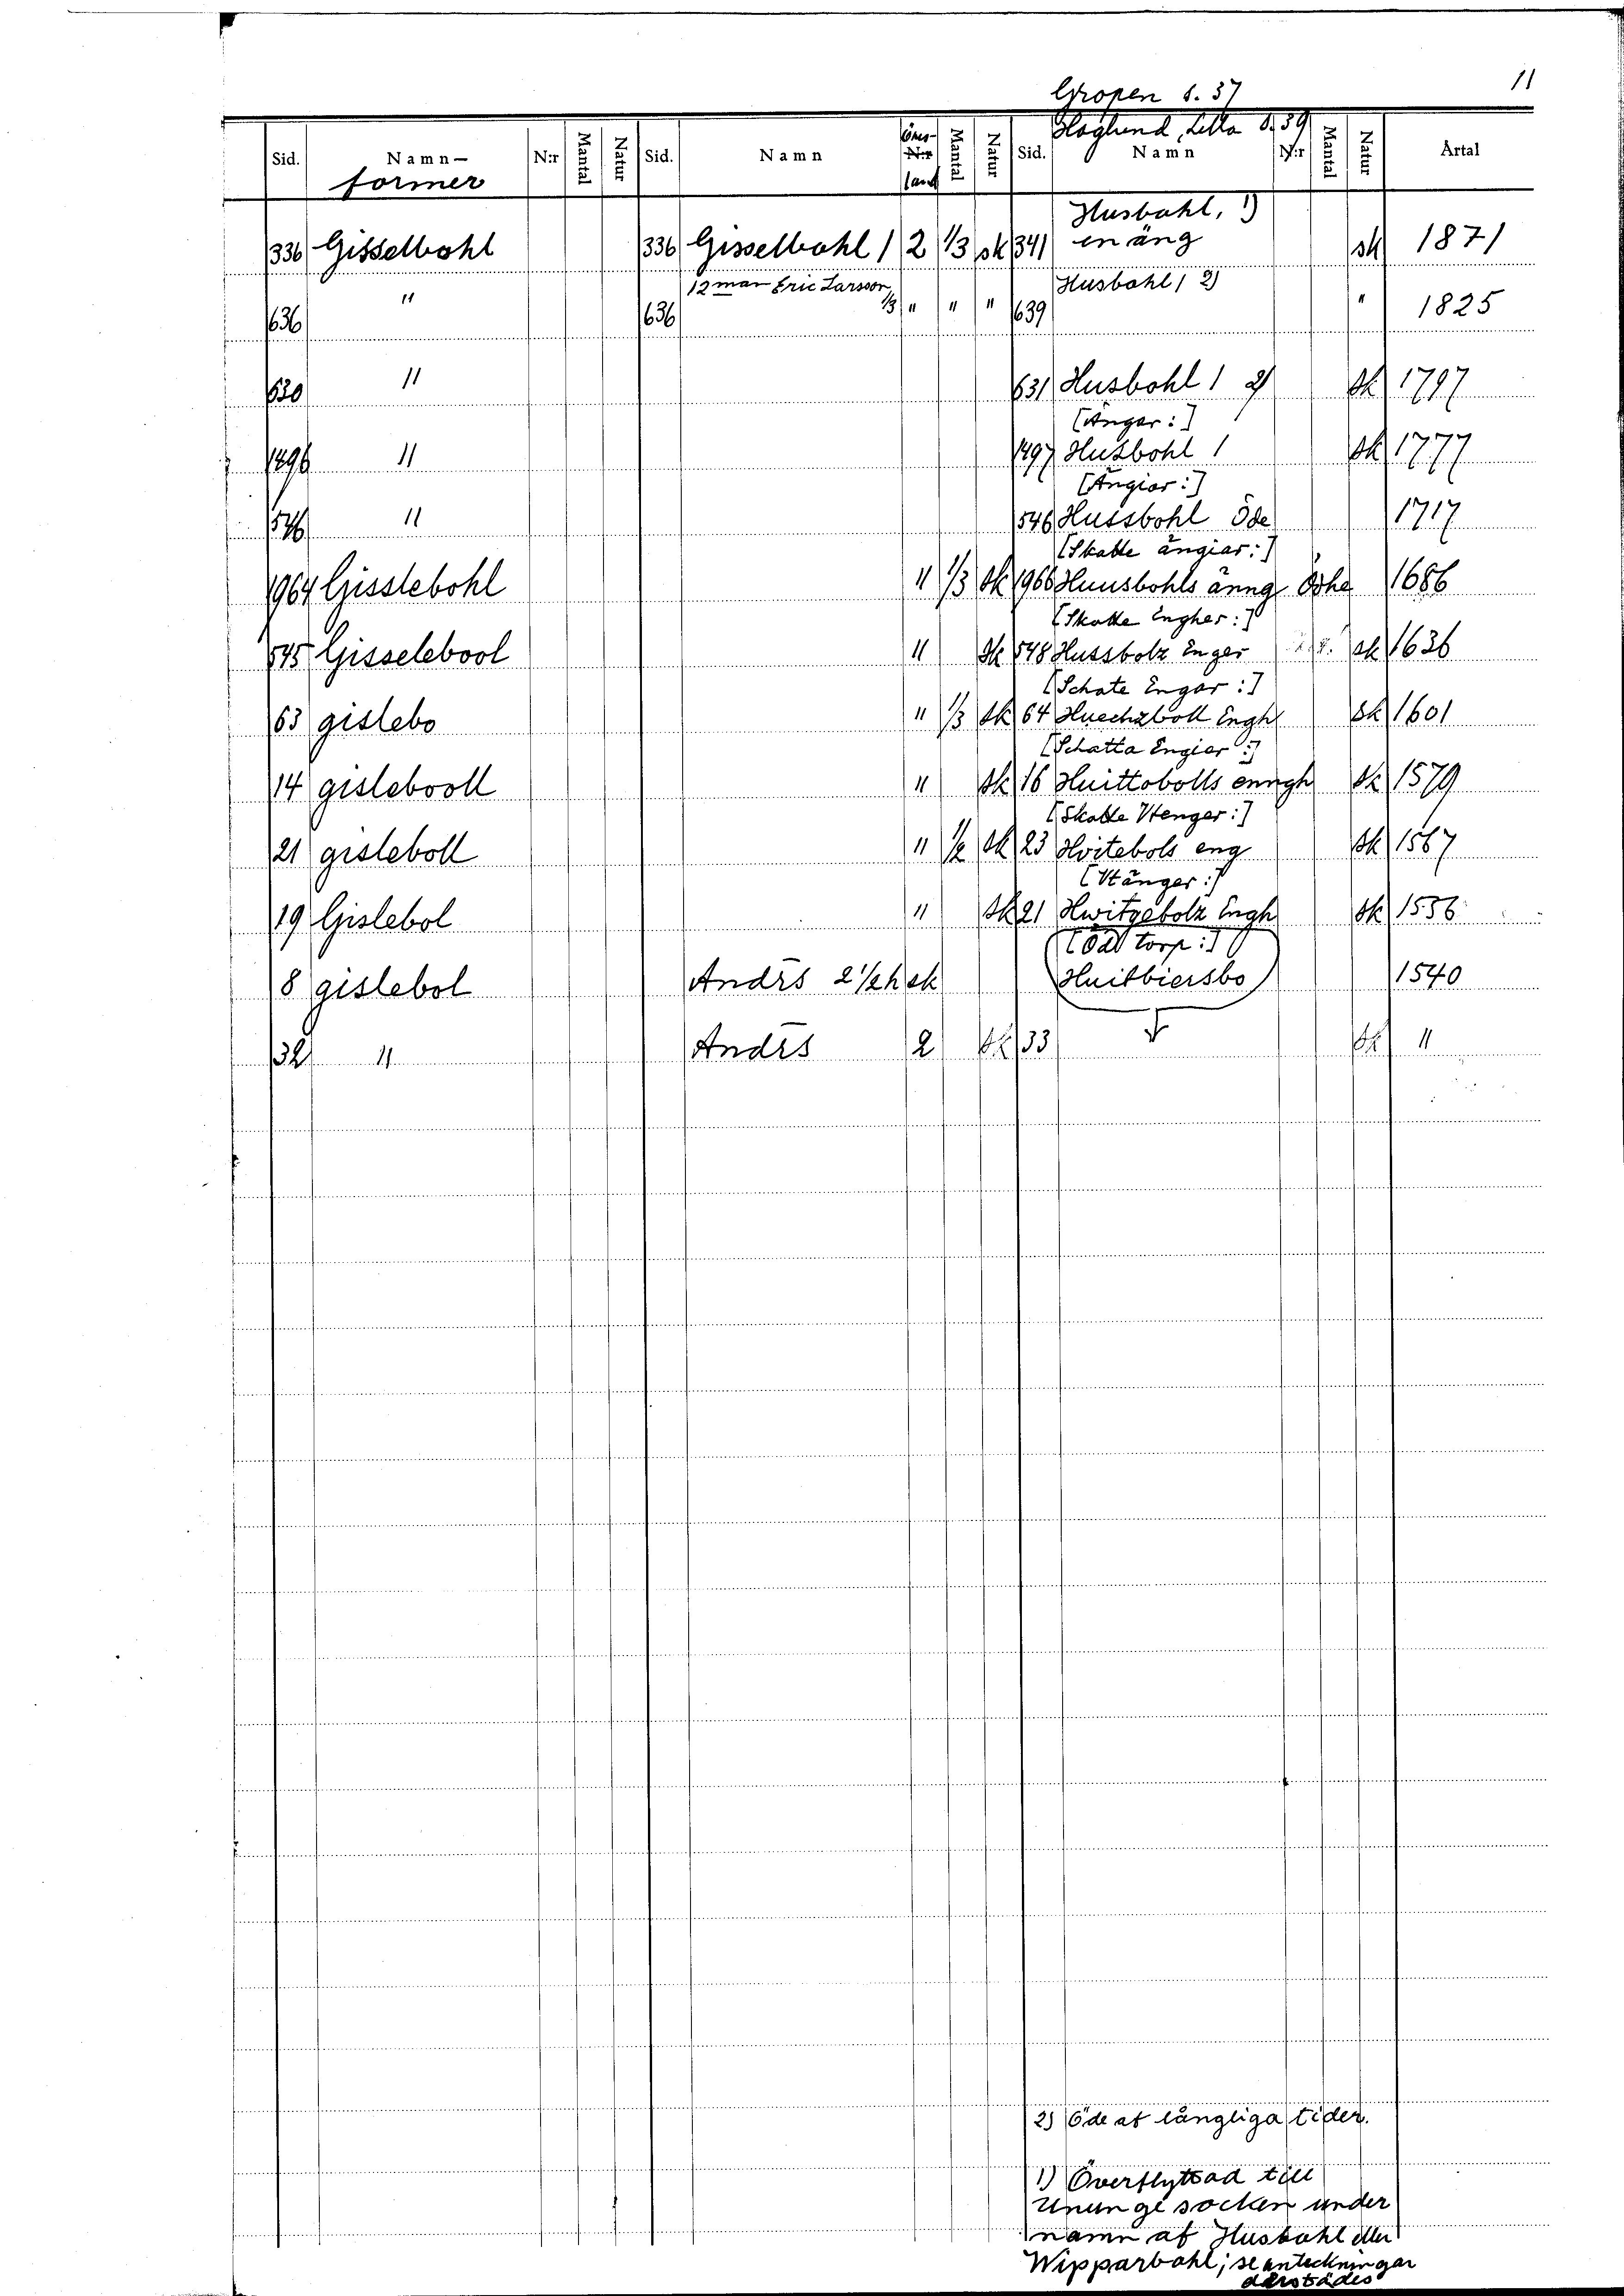 11
Gropen s. 37
Höglund, Lilla s. 39
Sid. Namn- N:r Mantal Natur Sid. Namn Öres- N:r Mantal Natur Sid. Namn N:r Mantal Natur Årtal
former land
Husbohl, 1)
336 Gisselbohl 336 Gisselbohl 1 2 1/3 sk 341 en äng sk 1871
12 man Eric Larsson Husbohl 1 2)
636 " 636 1/3 " " " 639 " 1825
630 " 631 Husbohl 1 2) sk 1797
[Ängar:]
1496 " 1497 Husbohl 1 sk 1777
[Ängior:]
546 " 546 Hussbohl Öde 1717
[Skatte ängiar:]
1964 Gisslebohl " 1/3 sk 1966 Huusbohls änng 1686
[Skatte Engher:]
545 Gisselebool " sk 548 Hussbolz Enger sk 1636
[Schate Engar:]
63 gislebo " 1/3 sk 64 Huechzboll Engh sk 1601
[Schatta Engior:]
14 gislebooll " sk 16 Huittobolls enngh sk 1579
[Skatte Vtenger:]
21 gisleboll " 1/2 sk 23 Hvitebols eng sk 1567
[Vtänger:]
19 Gislebol " sk 21 Hwitzebolz Engh sk 1556
[Öde torp:]
8 gislebol Andrs 2 1/2 h sk Huitbiersbo 1540
32 " Andrs 2 sk 33 sk "
2) Öde af långliga tider.
1) Överflyttad till
Ununge socken under
namn af Husbohl eller
Wipparbohl; se anteckningar
därstädes